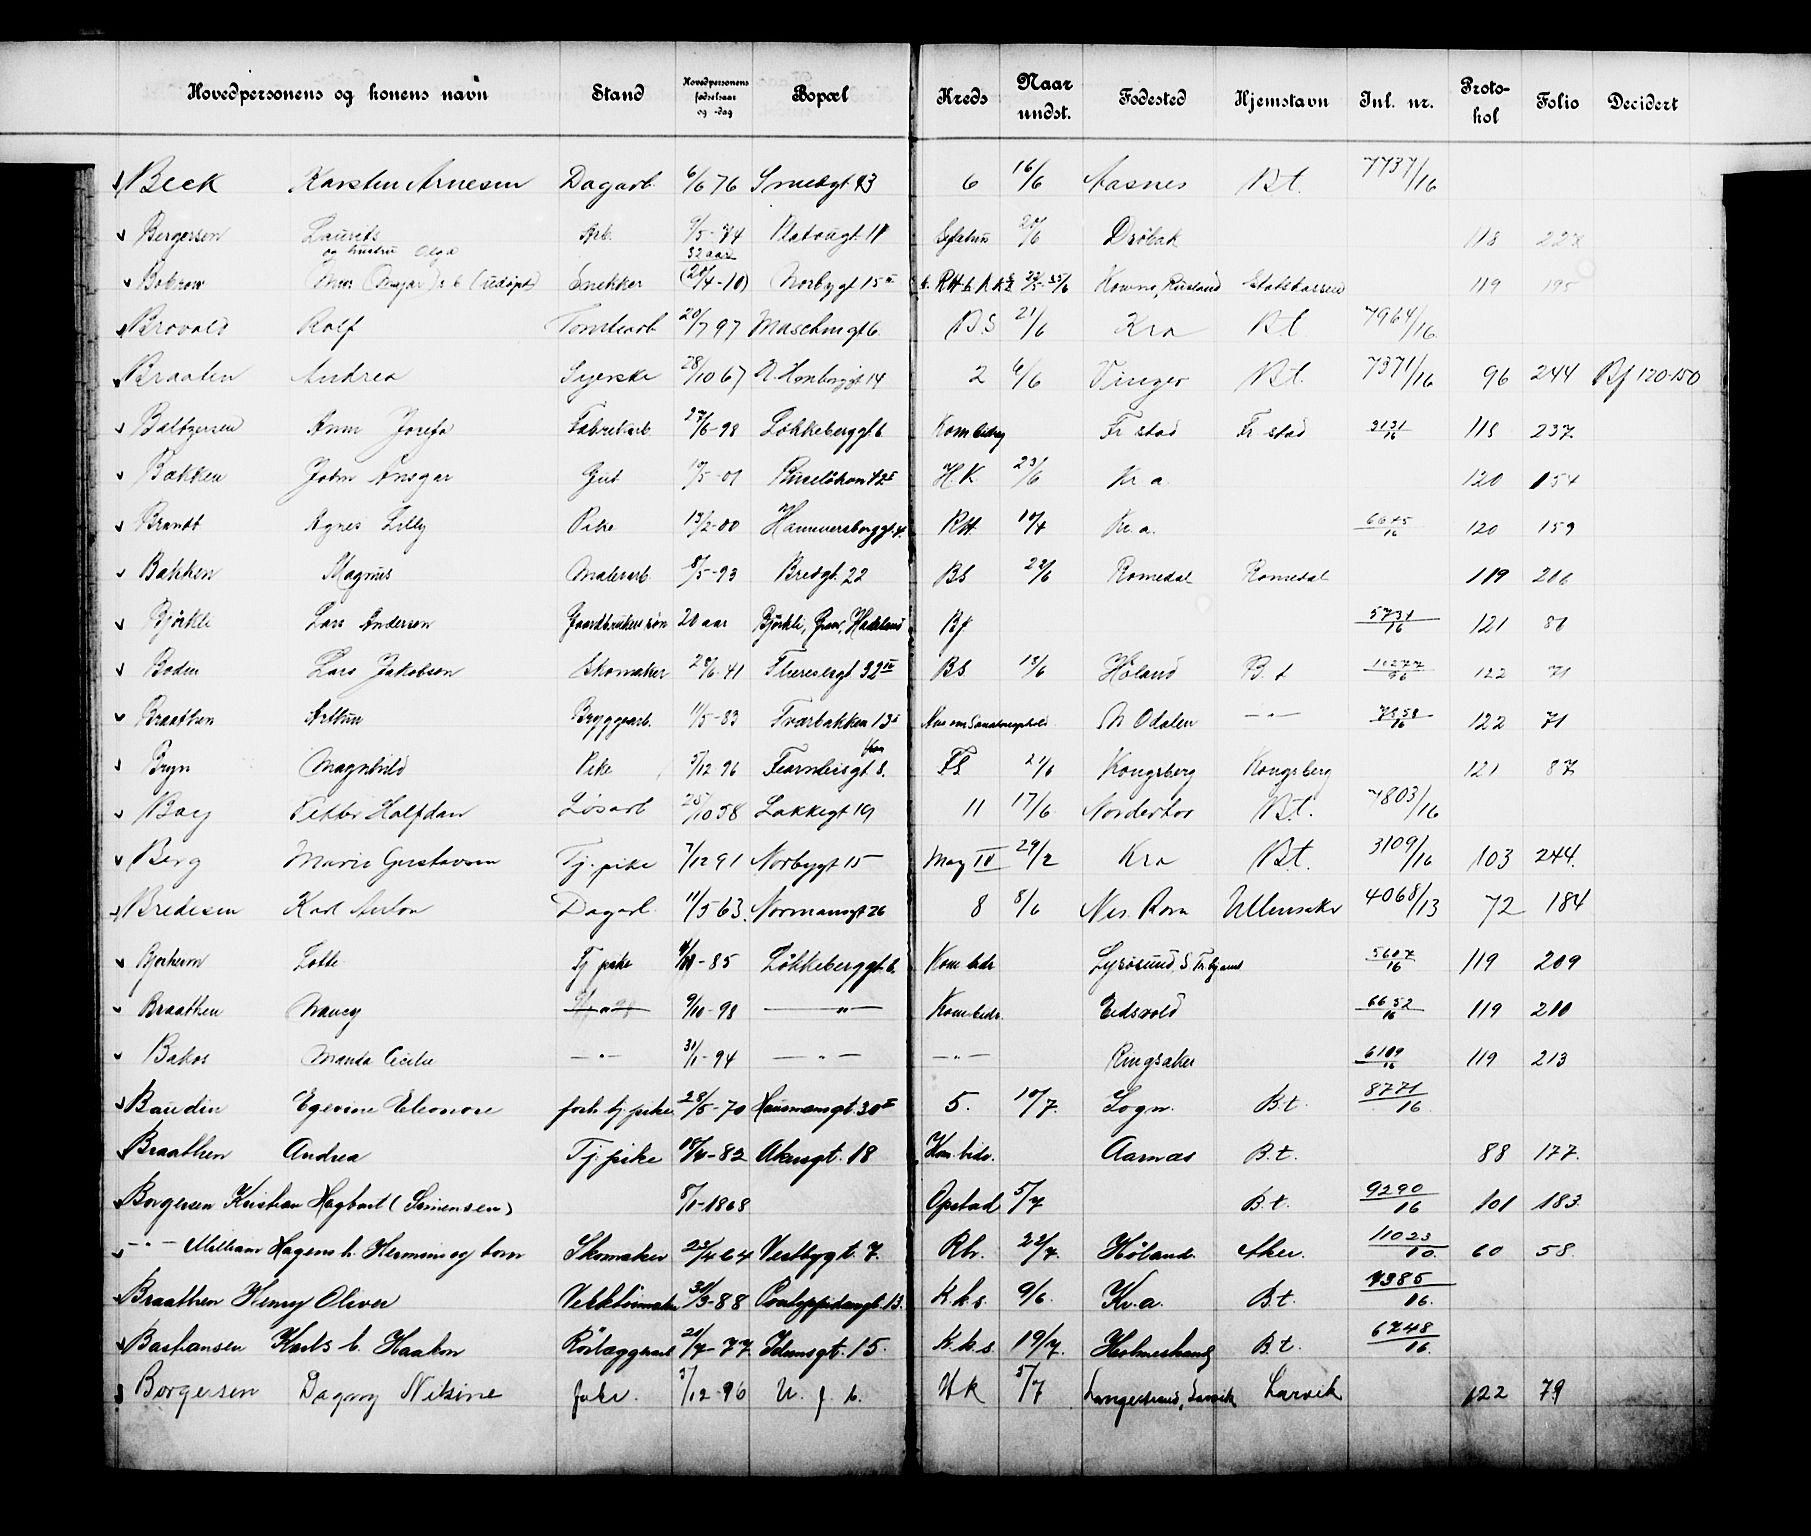 Hovedpersonens og konens navn Stand Hovedpersonens fødselsaar og -dag Bopæl Kreds Naar undst. Fødested Hjemstavn Jnl. nr. Protokol Folio Decidert
Beck Karsten Arnesen Dagarb. 6/6 76 Smedgt 43 6 16/6 Aasnes B.t. 7737/16
Bergersen Laurits Arb. 9/5-74 11 20/6 Drøbak 118
og hustru Olga 32 aar
Snekker (20/4-10) Norbygt 15 II Kowno, Rusland Statskassen 119 195
Brovold Rolf Tomtearb 20/7 97 Maschingt 6 B.S 21/6 Kra B.t. 7964/16
Braaten Andrea Syerske 28/10 67 N. Hambrogt 14 2 6/6 Vinger B.t. 7371/16 96 244 Bf 120-150
Baltzersen Anna Josefa Fabrikarb. 27/6-98 Løkkeberggt 6 Kom bidrag Fr stad Fr stad 3131/16 118 237
Bakken John Ansgar Gut 19/5-01 H.K 23/6 Kr a. 120 154
Brandt Agnes Lilly Pike 13/2-00 Hammersborggt 4 RH. 10/4 Kr. a. 6645/16 120 159
Bakken Magnus Malerarb. 8/5-93 Bredgt. 22 BS 22/6 Romedal Romedal 119 206
Bjørkli Lars Anderson Gaardbrukersøn 20 aar Bjørkli, Gran, Hadeland Bf 5731/16 121 81
Bodin Lars Jakobsen Skomaker 28/6-41 Theresegt. 32 IV BS 13/6 Høland B. t 122 71
Braathen Arthur Bryggearb. 11/5-83 Tværbakken 13 N Odalen — " — 7858/16 122 71
Bryn Magnhild Pike 5/12 96 Fearnleysgt 8. FS 21/6 Kongsberg Kongsberg 121 87
Boey Petter Halfdan Løsarb 25/10 58 Lakkegt 19 11 17/6 Norderhov B.t. 7803/16
Berg Marie Gustavson Tj. pike 7/12 91 Norbygt 15 Mag IV 29/2 Kra B.t. 3109/16 103 244.
Bredesen Karl Anton Dagarb. 11/5 63. Normannsgt 26 8 8/6 Nes. Rom. Ullensaker 4068/13 72 184
Lotte Tj pike -85 Løkkeberggt. 6. Kom bidr 5607/16 119 209
Braathen Nancy 9/10-98 — " — Kom bidr. Eidsvold 6652/16 119 210
Bakos Manda Cecilie — " — 31/1-94 — " — — " — Ringsaker 6109/16 119 213
Baudin Egevine Eleonore forh. tj. pike 28/5-70 Hausmansgt. 30 II 5. 10/7. Sogn. B.t. 8771/16
Braathen Andrea Tj. pike 18/4-82 Akersgt. 18 Kom. bidr. Aarnæs B.t. 88 177.
Borgersen Kristian Hagbart (Simensen) 5/1-1868 Opstad 5/7 B.t. 9290/16 101 183.
— " — Milliam Hagens h. Hermine og barn Skomaker 23/4 64 Vestbygt. 7. Rb. 22/7. Høland. Aker. 11023/10. 60 58.
Braathen Henry Oliver 30/3-88 Pontoppidansgt. 13. K.k.s. 9/6. Kr.a. B.t. 7385/16.
Bastiansen Karls h. Haakon Rørlæggerarb 20/7-77. Idunsgt. 15. K.k.s 19/7. Holmestrand B.t. 6748/16.
Borgersen Dagny Nilsine frk. 5/12-96 U. f. b. HK 5/7 Langestrand, Larvik Larvik 122 79